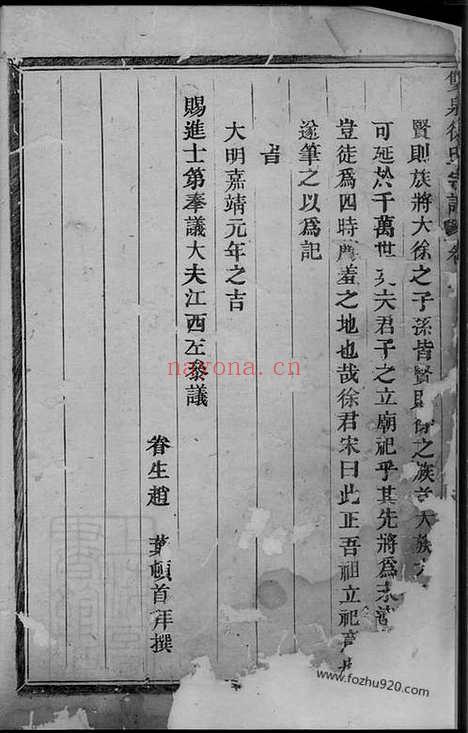 雙泉徐氏宗譜 卷
賢則族將大徐之子孫皆賢則徐之族 大族
可延於千萬世 夫君子之立廟祀乎其先將爲
豈徒爲四時薦羞之地也哉徐君宋曰此正吾祖立祀意
遂筆之以爲記
旹
大明嘉靖元年之吉
賜進士第奉議大夫江西左參議
眷生趙 頓首拜撰
nayona.cn
www.fozhu920.com